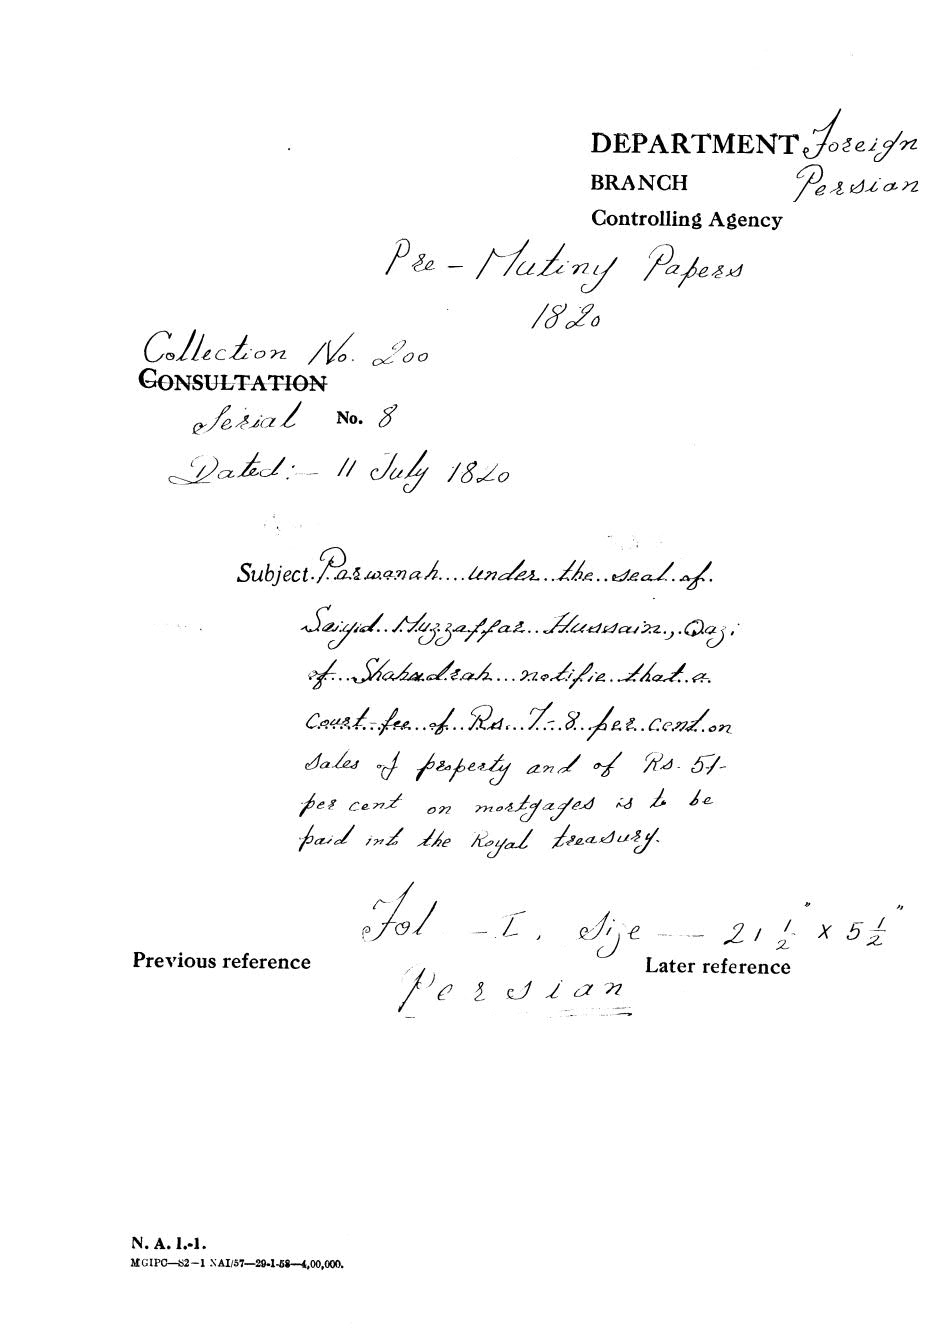 DEPARTMENT Foreign
BRANCH Persian
Controlling Agency
Pre - Mutiny Papers
1820
Collection No. 200
CONSULTATION
Serial No. 8
Dated:- 11 July 1820
Subject. Parwanah.... under the seal of.
Saiyid Muzzaffar Hussain, Qazi
of Shahadrah notifie that a
Court-fee of Rs. 7-8 per cent on
sales of property and of Rs. 5/-
per cent on mortgages is to be
paid into the Royal treasury.
Fol - I. Size — 21 1/2" x 5 1/2"
Previous reference Later reference
Persian
N. A. I.-1.
MGIPC—S2—1 NAI/57—29-1-58—4,00,000.